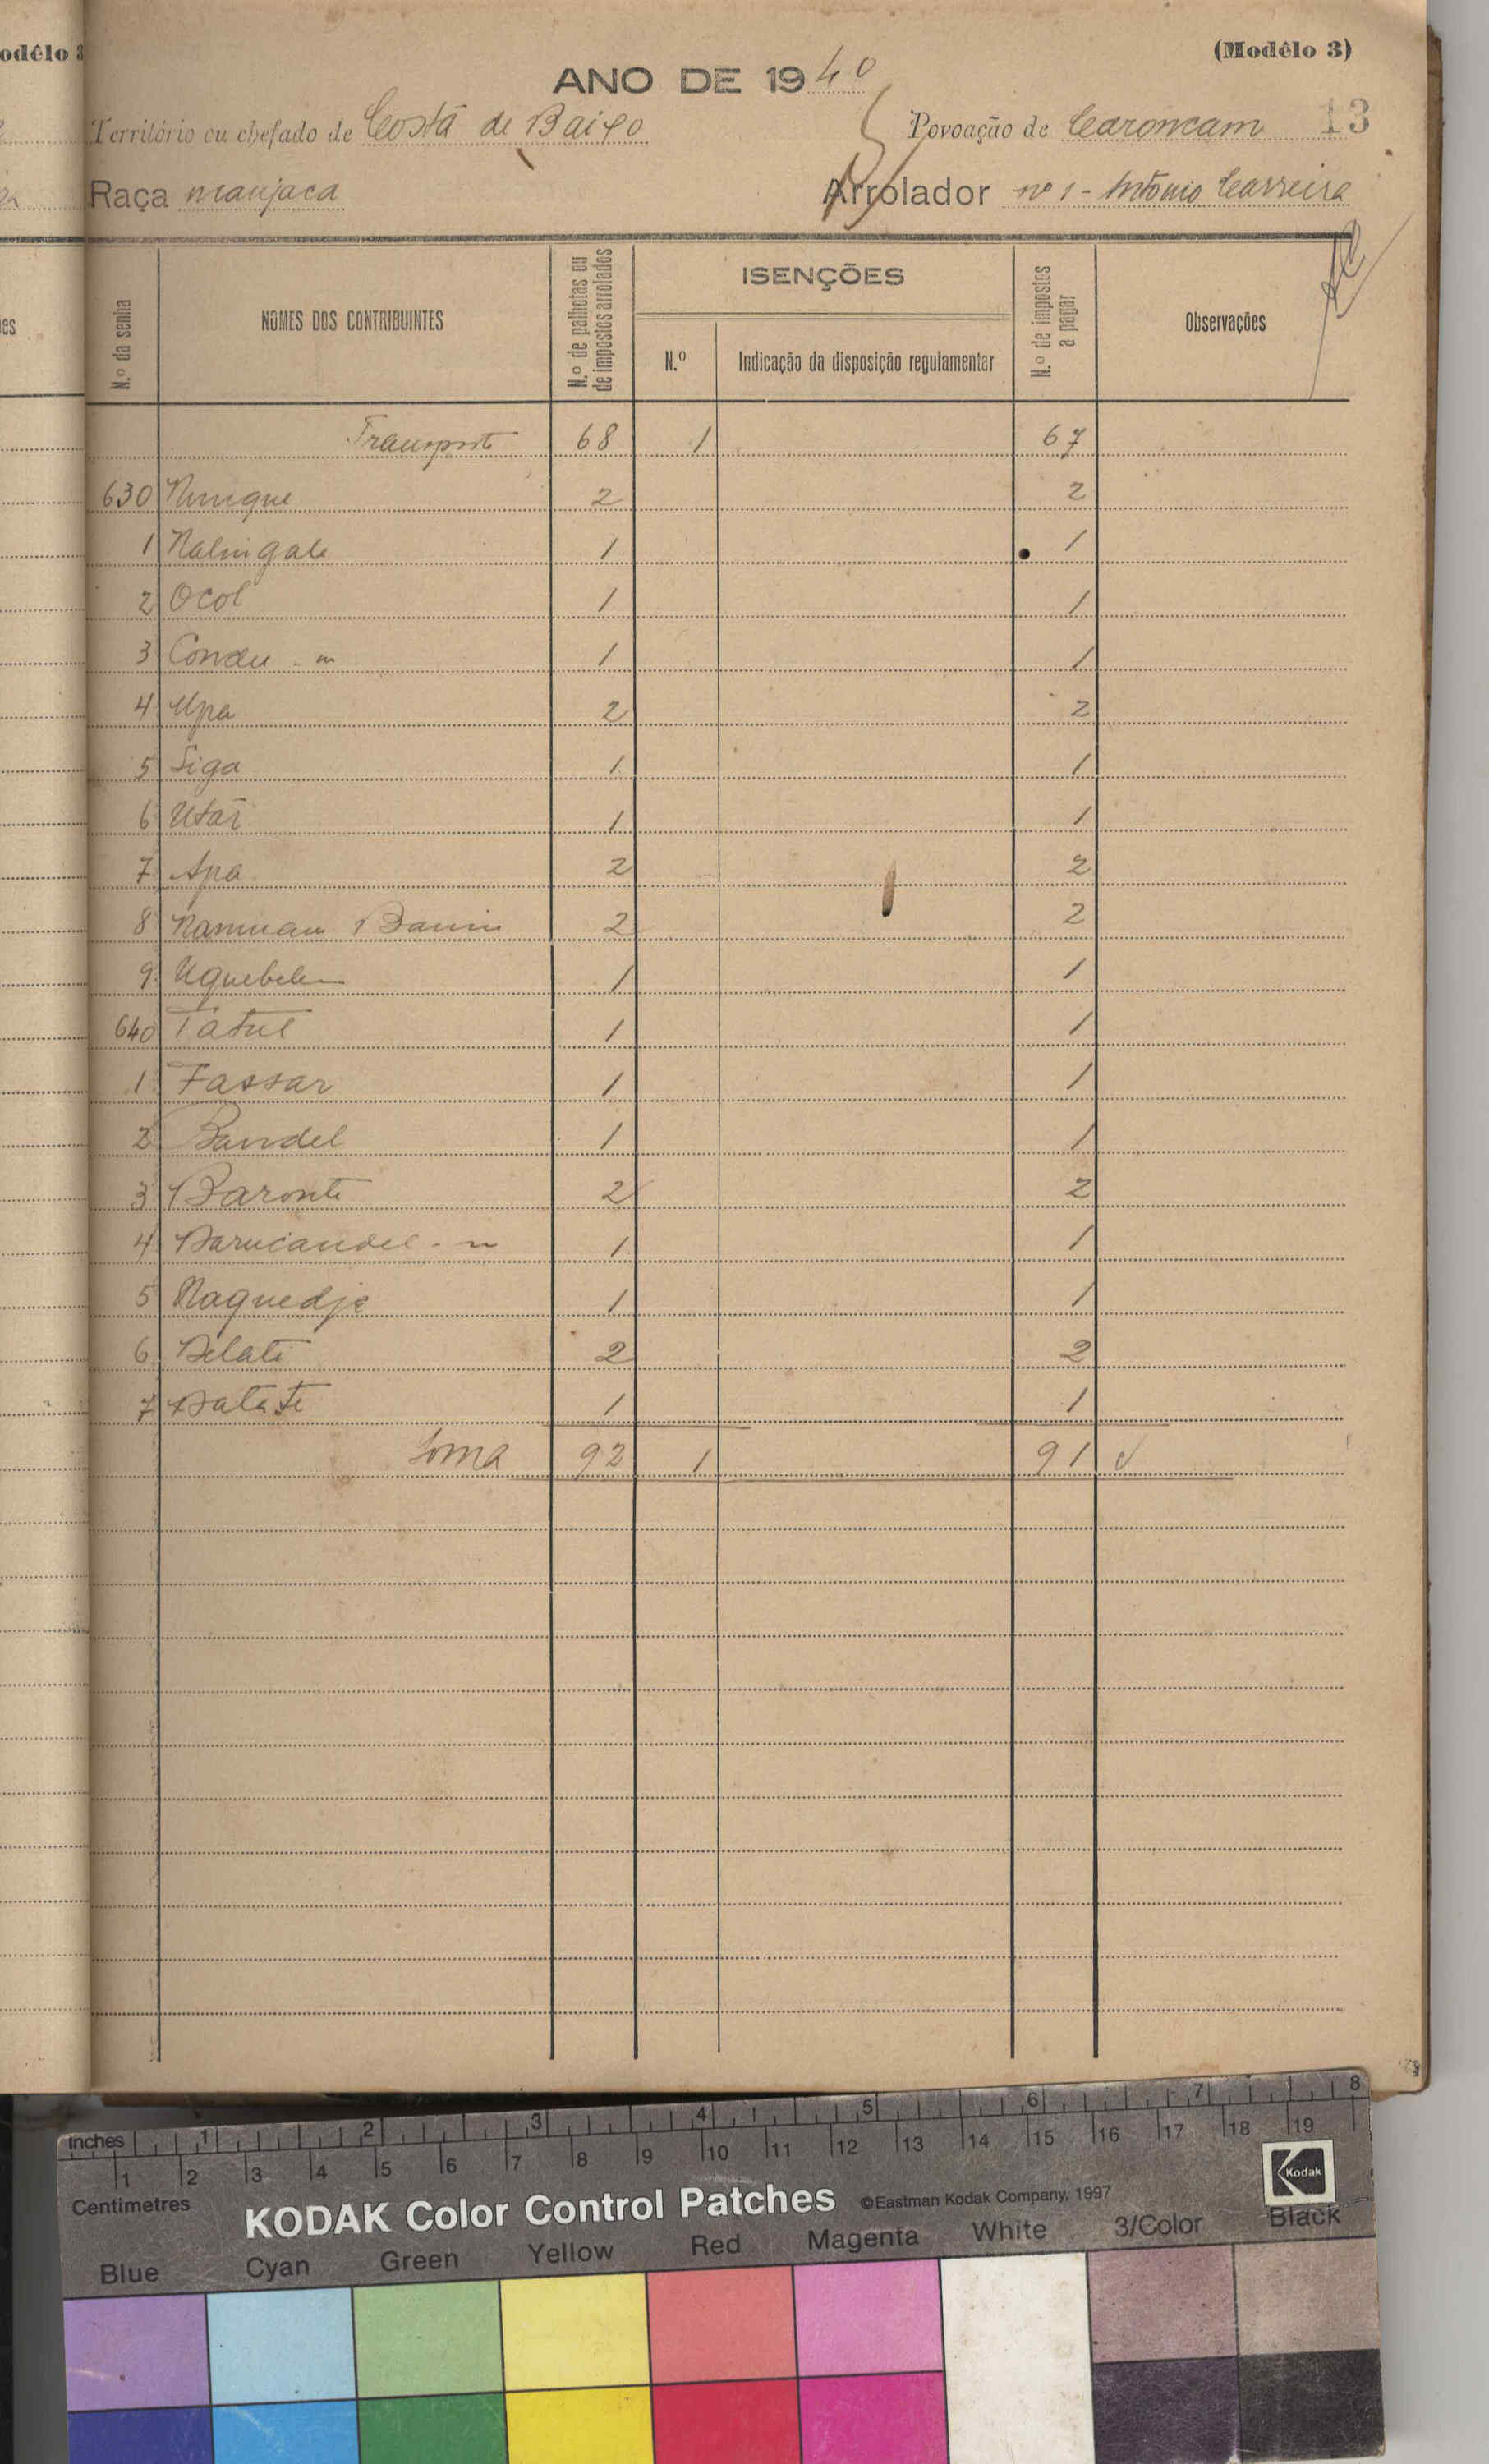 (Modêlo 3)
ANO DE 1940
13
Território ou chefado de Costa de Baixo Povoação de Caroncam
Raça manjaca Arrolador nº 1 - António Carreira
N.º da senha NOMES DOS CONTRIBUINTES N.º de palhotas ou de impostos arrolados ISENÇÕES N.º de impostos a pagar Observações
N.º Indicação da disposição regulamentar
Transporte 68 1 67
630 2 2
1 Nalingale 1 1
2 Ocol 1 1
3 Condu - m 1 1
4 Upa 2 2
5 Siga 1 1
6 Utai 1 1
7 Apa 2 2
8 2 2
9 Uquebelen 1 1
640 Tatul 1 1
1 Fassar 1 1
2 Bandel 1 1
3 Baronte 2 2
4 1 1
5 Naquedje 1 1
6 Delate 2 2
7 Datate 1 1
Soma 92 1 91
inches 1 2 3 4 5 6 7 8
1 2 3 4 5 6 7 8 9 10 11 12 13 14 15 16 17 18 19
Centimetres
KODAK Color Control Patches ©Eastman Kodak Company, 1997 Kodak
Blue Cyan Green Yellow Red Magenta White 3/Color Black